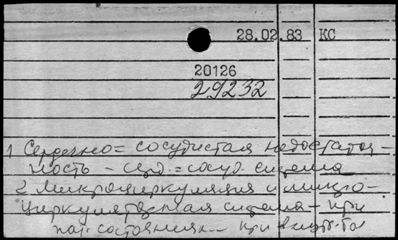 28.02.83 КС
20126
29232
1 Сердечно=сосудистая недостаточ-
ность - серд.=сосуд. система
2. Микроциркуляция и микро-
циркуляторная система - при
пат. состояниях - при внутр.